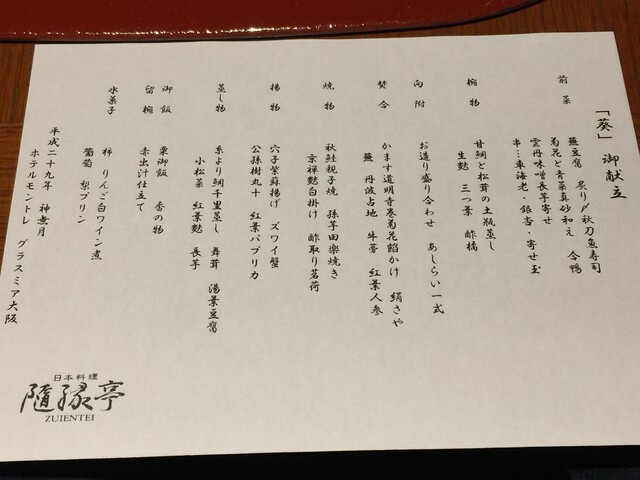 「葵」 御献立
前菜
蕪豆腐 炙り〆秋刀魚寿司
菊花と青菜真砂和え 合鴨
雲丹味噌長芋寄せ
串…車海老・銀杏・寄せ玉
椀物
甘鯛と松茸の土瓶蒸し
生麩 三つ葉 酢橘
向附
お造り盛り合わせ あしらい一式
焚合
かます道明寺巻菊花餡かけ 絹さや
蕪 丹波占地 牛蒡 紅葉人参
焼物
秋鮭親子焼 孫芋田楽焼き
京禅麩白掛け 酢取り茗荷
揚物
穴子紫蘇揚げ ズワイ蟹
公孫樹丸十 紅葉パプリカ
蒸し物
糸より鯛千里蒸し 舞茸 湯葉豆腐
小松菜 紅葉麩 長芋
御飯
栗御飯 香の物
留椀
赤出汁仕立て
水菓子
柿 りんご白ワイン煮
葡萄 梨プリン
平成二十九年 神無月
ホテルモントレ グラスミア大阪
日本料理
隨縁亭
ZUIENTEI